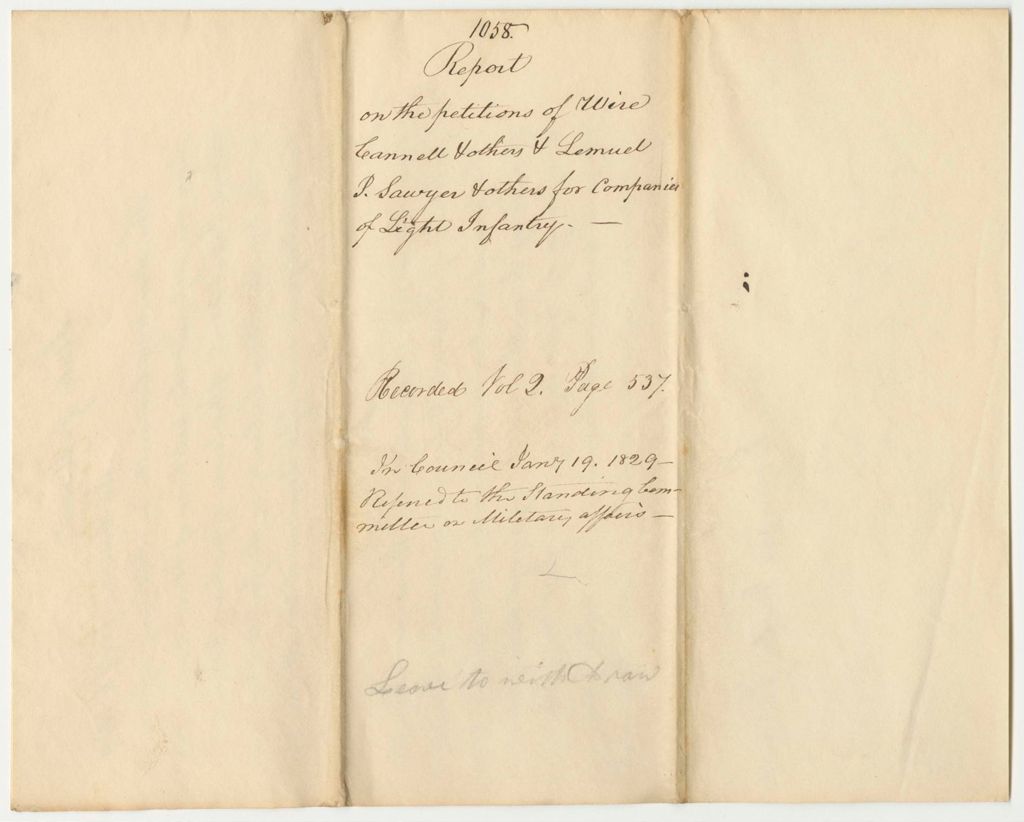 1058.
Report
on the petitions of Wire
Cannell & others & Lemuel
P. Sawyer & others for Companies
of Light Infantry. —
Recorded Vol 2. Page 537.
In Council Jany 19. 1829 —
Referred to the Standing Com-
mittee on Military affairs —
Leave to withdraw